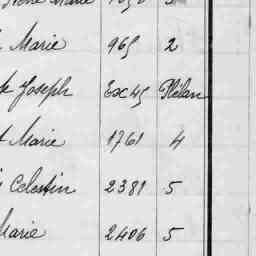 Marie
Marie 965 2
Joseph Ex 45 Plélan
Marie 1761 4
Celestin 2381 5
Marie 2406 5